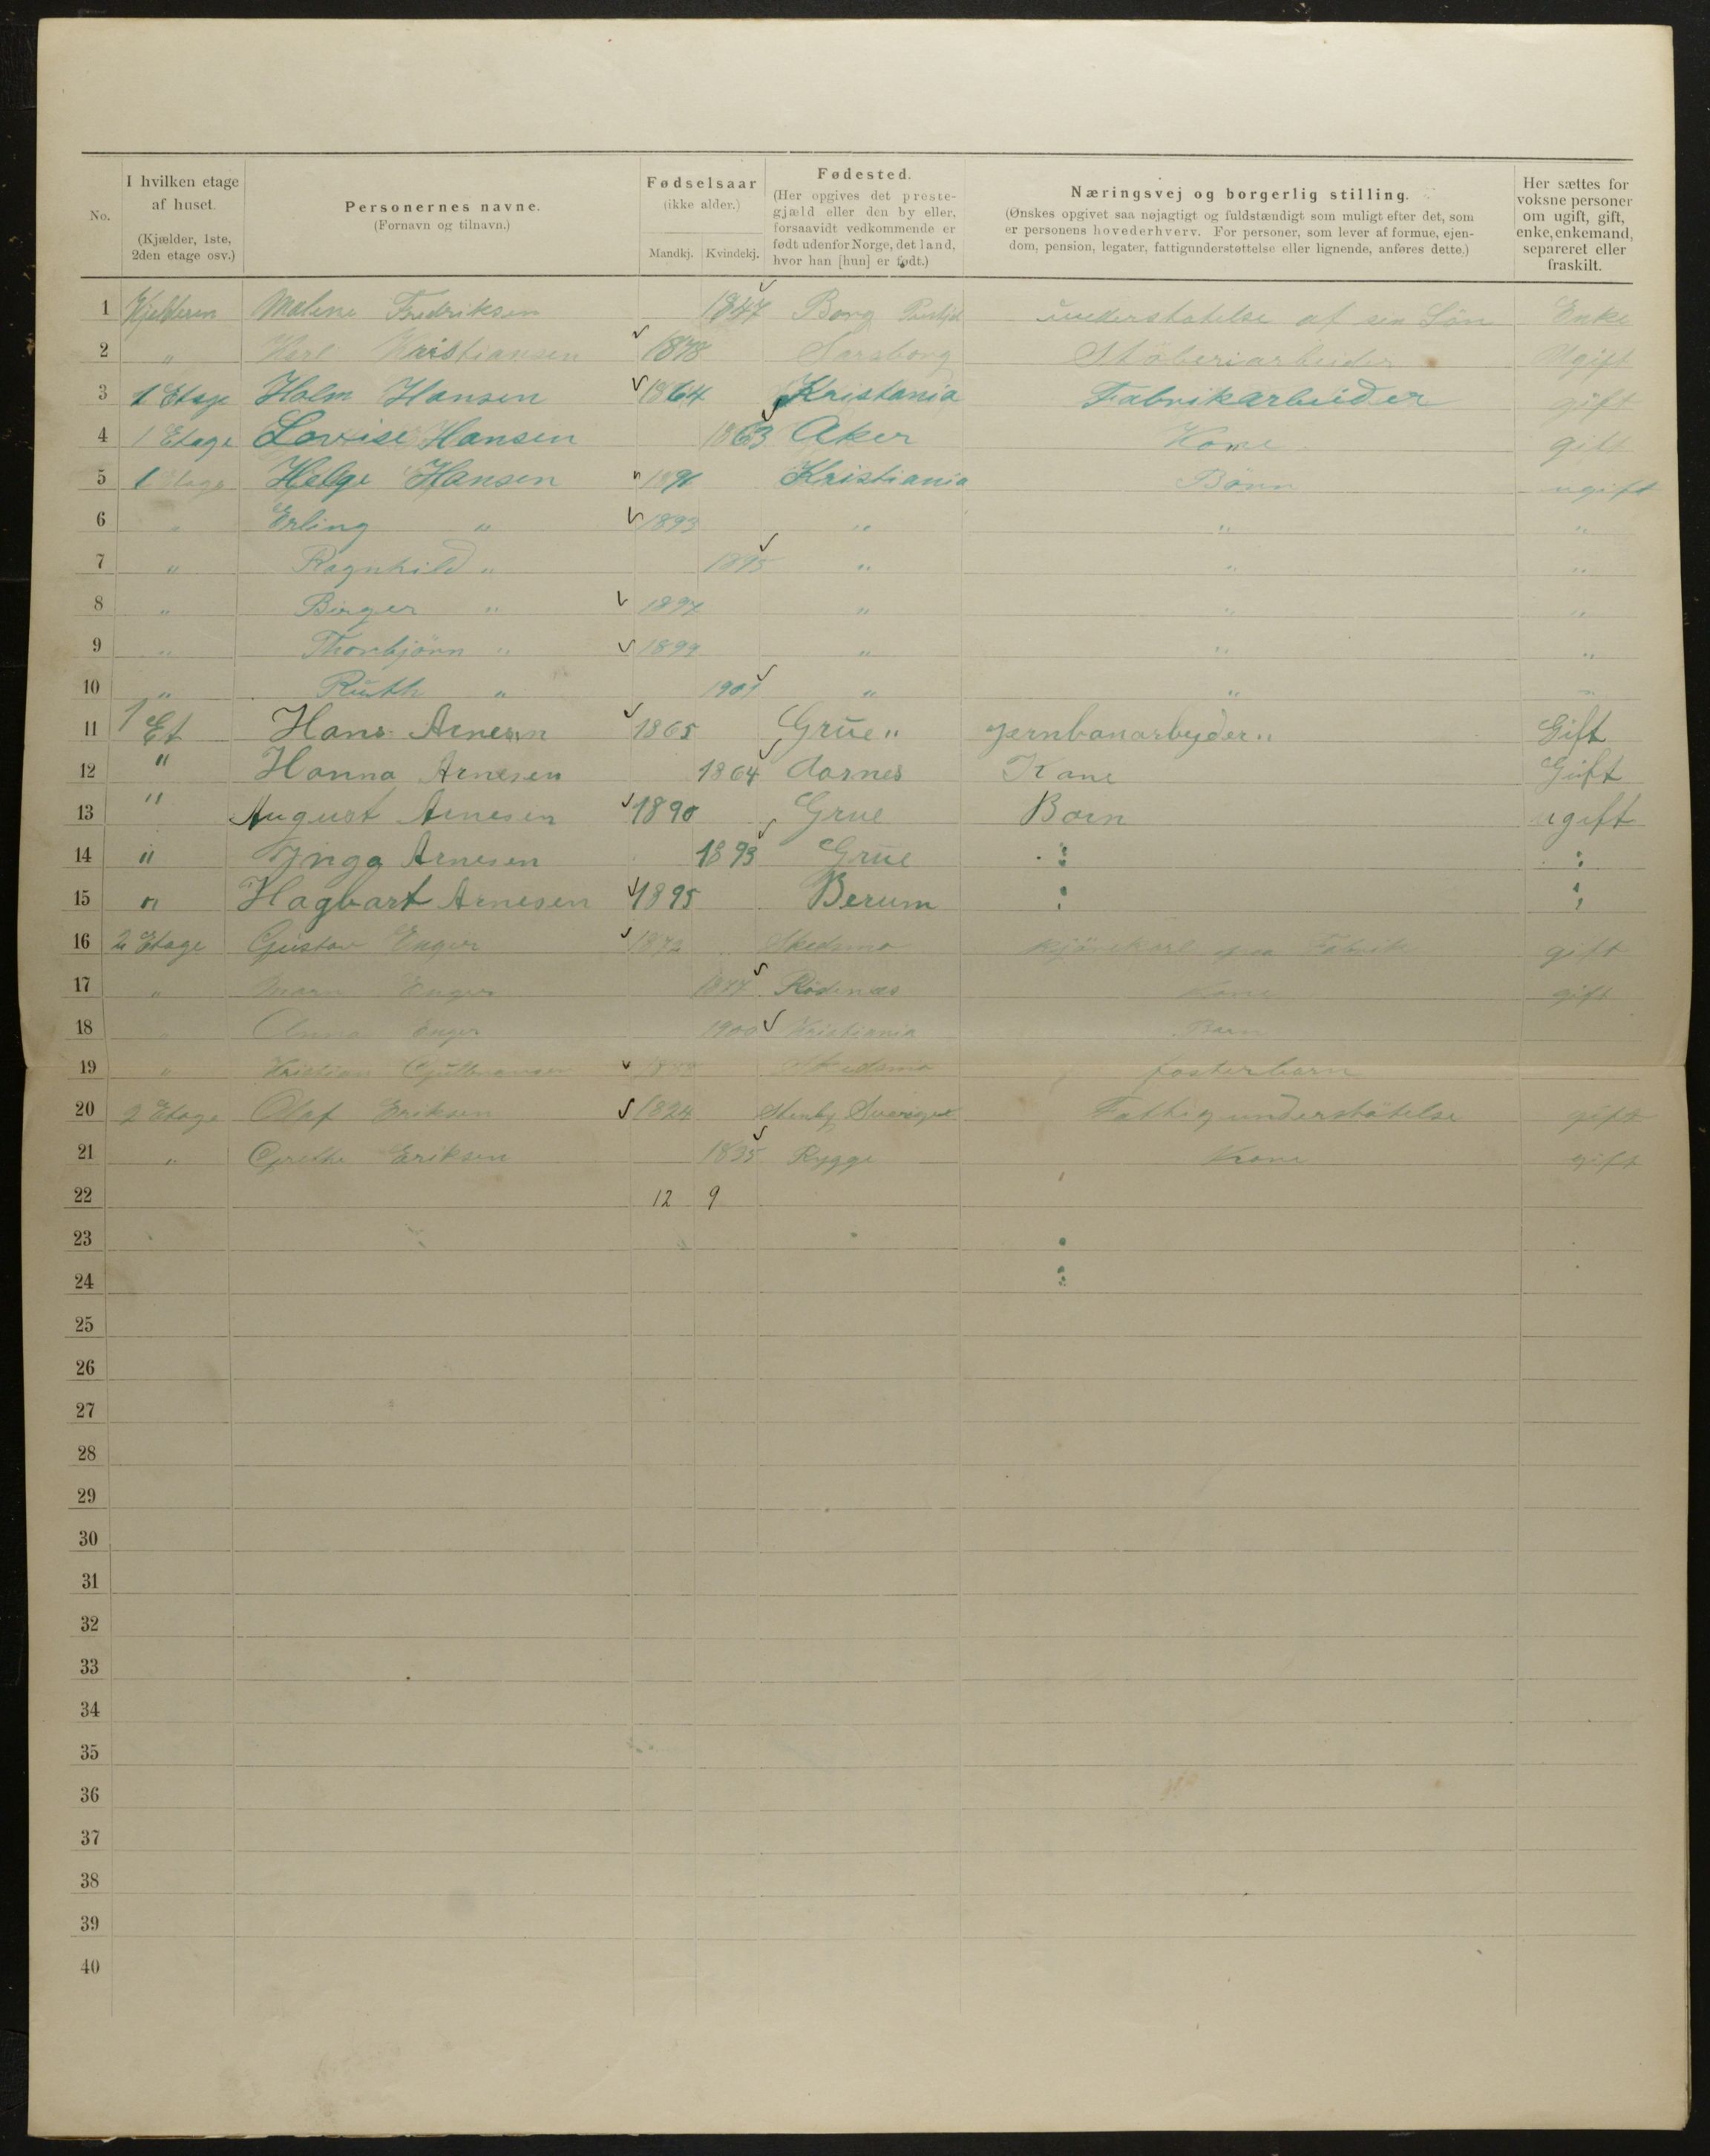 No.
I hvilken etage af huset. (Kjælder, 1ste, 2den etage osv.)
Personernes navne. (Fornavn og tilnavn.)
Fødselsaar (ikke alder.) Mandkj. Kvindekj.
Fødested. (Her opgives det prestegjæld eller den by eller, forsaavidt vedkommende er født udenfor Norge, det land, hvor han [hun] er født.)
Næringsvej og borgerlig stilling. (Ønskes opgivet saa nøjagtigt og fuldstændigt som muligt efter det, som er personens hovederhverv. For personer, som lever af formue, ejendom, pension, legater, fattigunderstøttelse eller lignende, anføres dette.)
Her sættes for voksne personer om ugift, gift, enke, enkemand, separeret eller fraskilt.
1 Kjelderen Malene Fredriksen 1847 Borg understøtelse af sen Sön Enke
2 " Kristiansen 1878 Sarsborg Støberiarbeider Ugift
3 1 Etage Holm Hansen 1864 Kristania Fabrikarbeider gift
4 1 Etage Lovise Hansen 1863 Aker Kone gift
5 1 Etage Helge Hansen Kristiania Börn ugift
6 " Erling " 1893 " " "
7 " Ragnhild " 1895 " " "
8 " Birger " 1897 " " "
9 " Thorbjörn " 1899 " " "
10 " Ruth " 1901 " " "
11 1 Et Hans Arnesn 1865 Grue " jernbanarbejder " Gift
12 " Hanna Arnesen 1864 Aarnes Kane Gift
13 " August Arnesen 1890 Grue Barn ugift
14 " Ynga Arnesen 1893 Grue " "
15 " Hagbart Arnesen 1895 Berum " "
16 2 Etage Gustav Enger 1872 Skedsmo kjörekarl paa Fabrik gift
17 " Enger Rödenæs Kone gift
18 " Anna Enger 1900 Kristiania Barn
19 " Kristian Skedsmo fosterbarn
20 2 Etage Olaf Eriksen 1824 Sverige Fattigunderstötelse gift
21 " Grethe Eriksen 1835 Rygge Kone gift
22 12 9
23
24
25
26
27
28
29
30
31
32
33
34
35
36
37
38
39
40